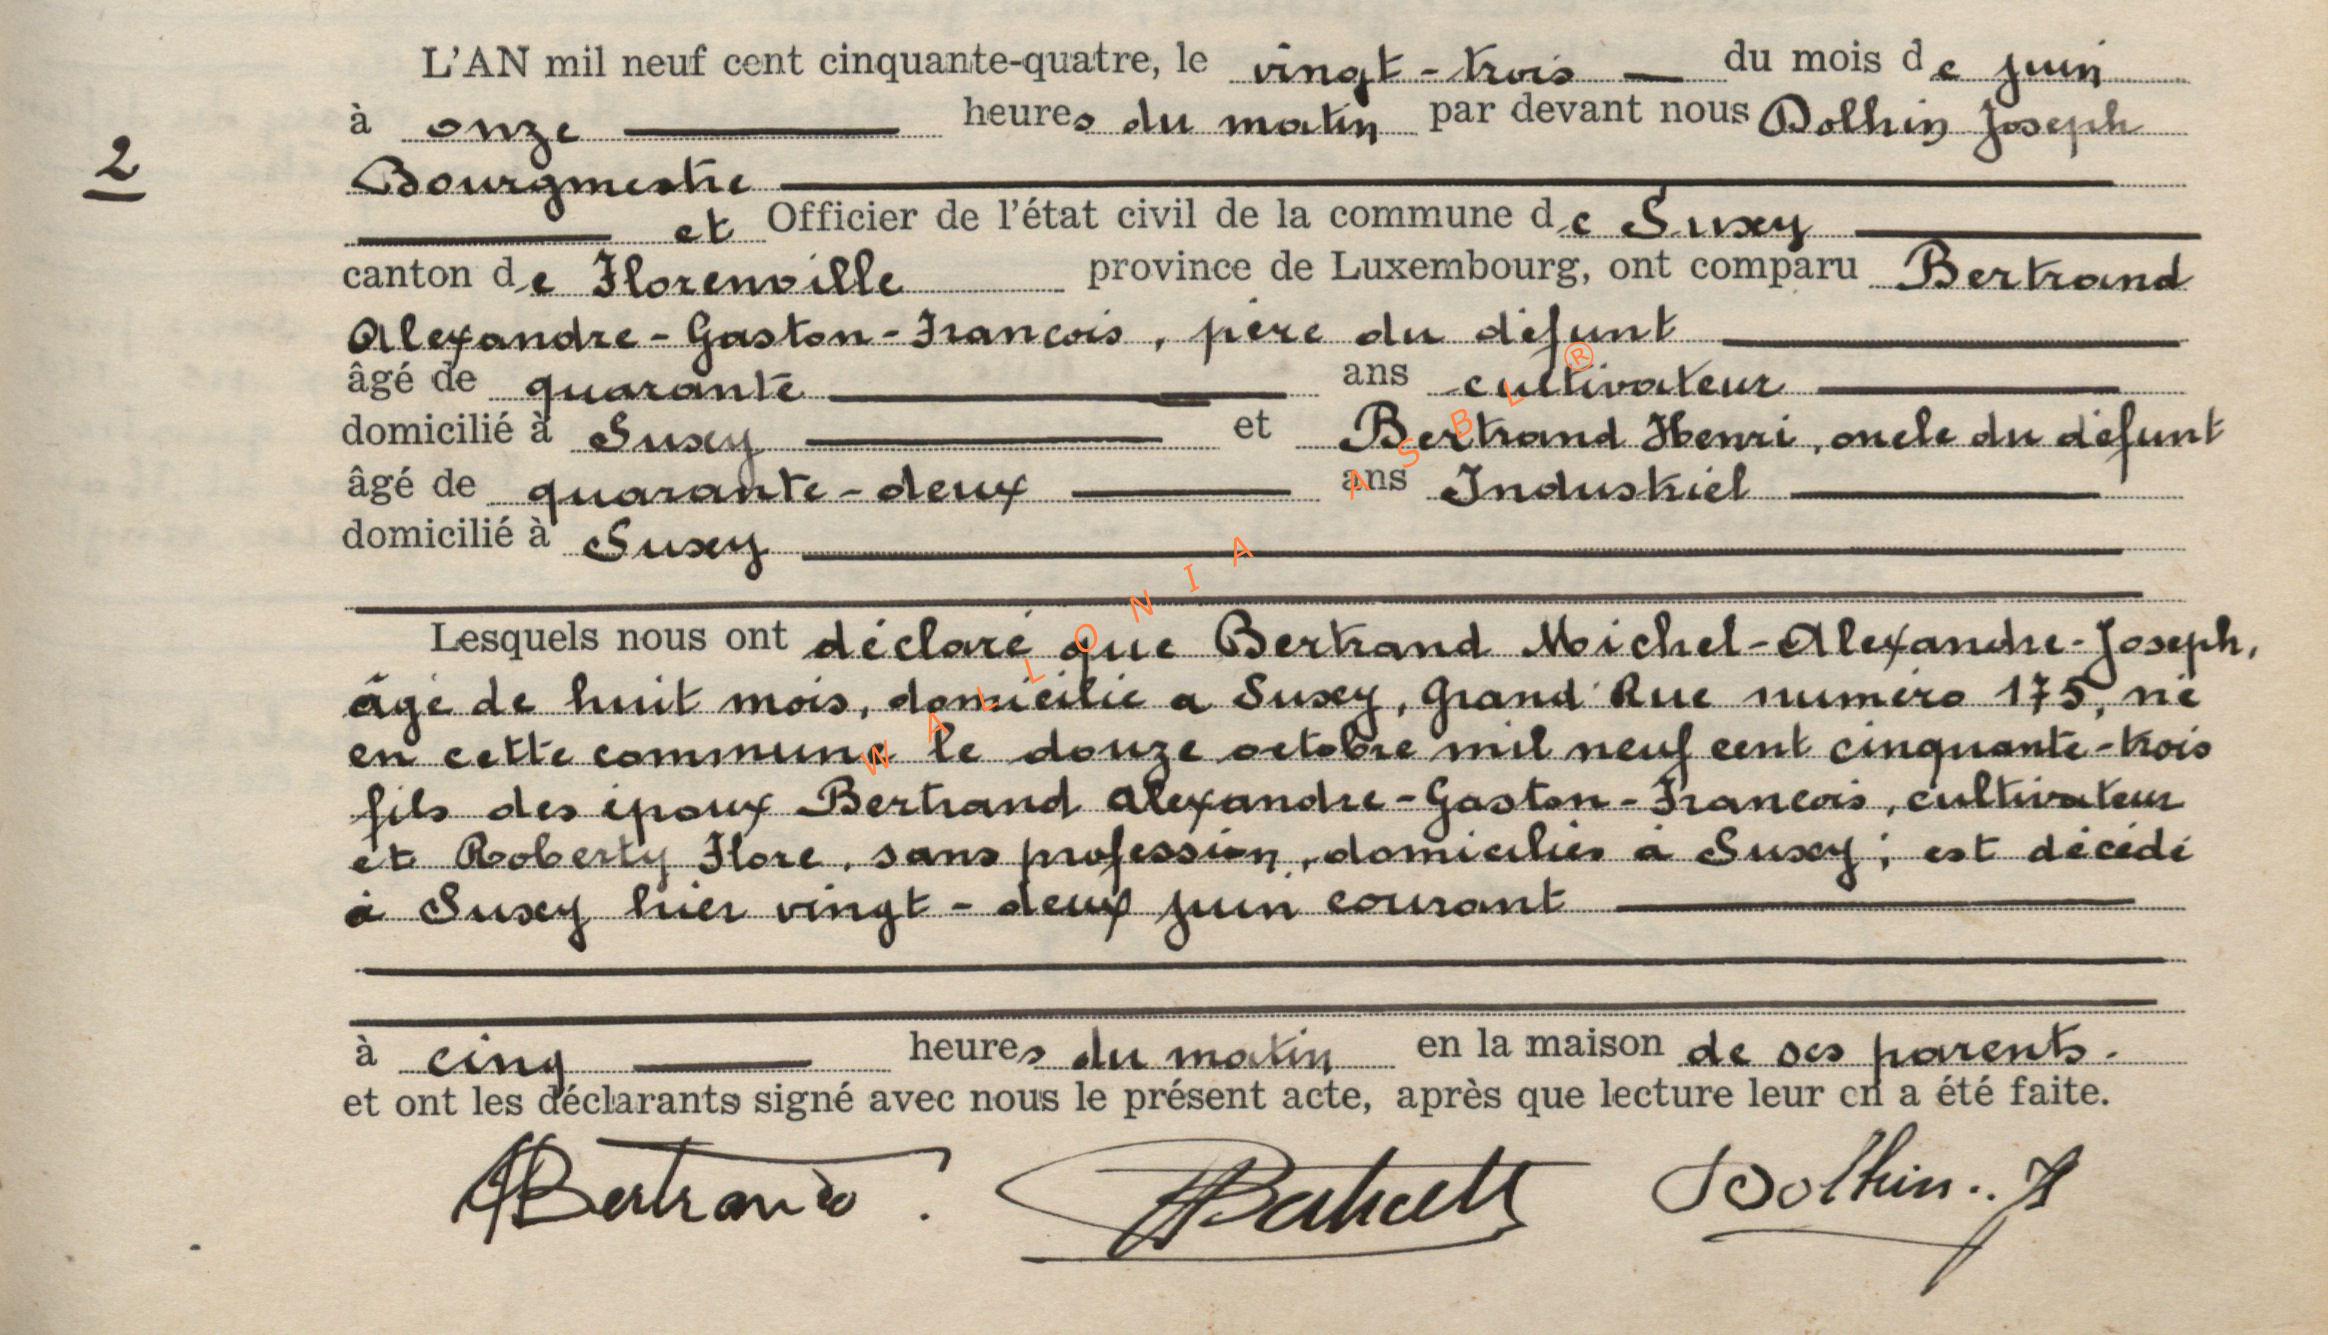 L'AN mil neuf cent cinquante-quatre, le vingt-trois — du mois de juin
à onze — heures du matin par devant nous Dolhin Joseph
2
Bourgmestre —
— et Officier de l'état civil de la commune de Suxy —
canton de Florenville province de Luxembourg, ont comparu Bertrand
Alexandre-Gaston-Francois, père du défunt —
âgé de quarante — ans cultivateur —
domicilié à Suxy — et Bertrand Henri, oncle du défunt
âgé de quarante-deux — ans Industriel —
domicilié à Suxy —
Lesquels nous ont déclaré que Bertrand Michel-Alexandre-Joseph,
âgé de huit mois, domicilié a Suxy, Grand Rue numéro 175, né
en cette commune le douze octobre mil neuf cent cinquante-trois
fils des époux Bertrand Alexandre-Gaston-Francois, cultivateur
et Roberty Flore, sans profession, domiciliés à Suxy; est décédé
à Suxy hier vingt-deux juin courant —
à cinq — heures du matin en la maison de ses parents.
et ont les déclarants signé avec nous le présent acte, après que lecture leur en a été faite.
ABertrand. Dolhin.. J
WALLONIA ASBL ®